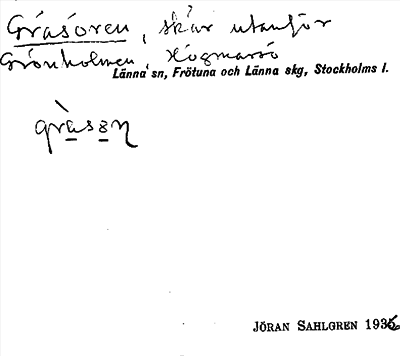 Gråsören, skär utanför
Grönholmen, Högmarsö
Länna sn, Frötuna och Länna skg, Stockholms l.
gràsen
JÖRAN SAHLGREN 1936